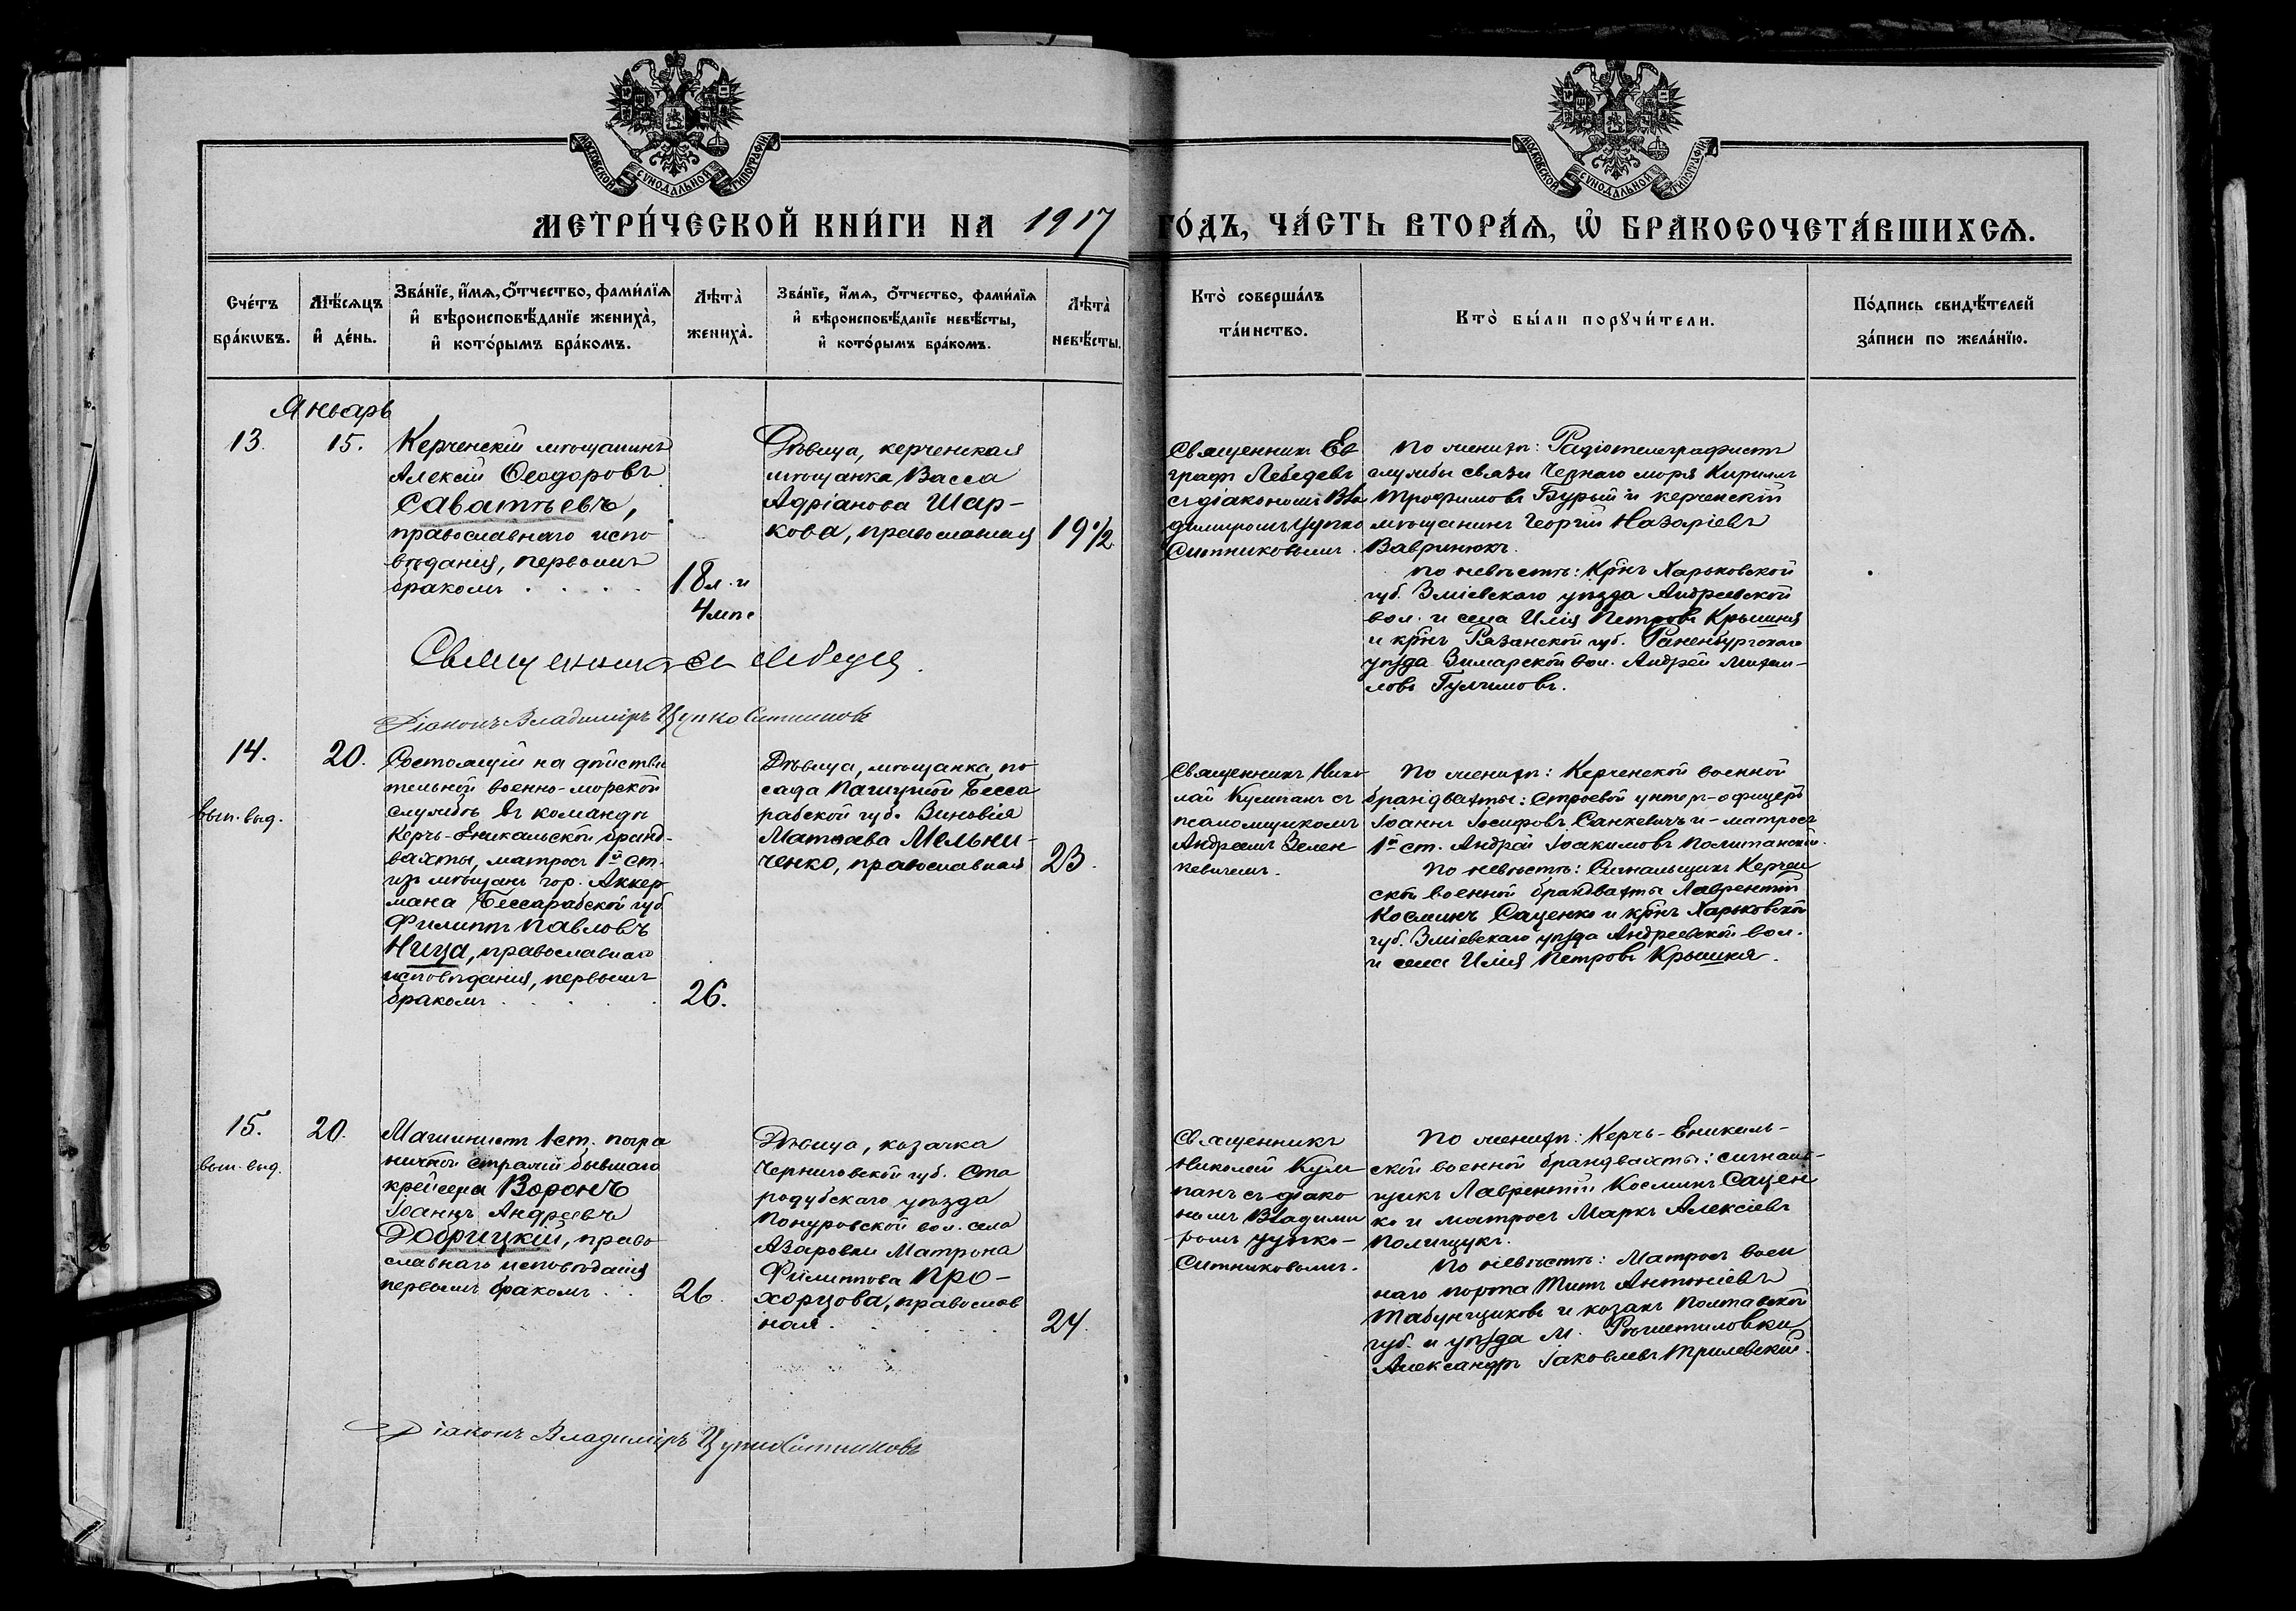 МОСКОВСКОЙ СУНОДАЛЬНОЙ ТИПОГРАФІИ
МОСКОВСКОЙ СУНОДАЛЬНОЙ ТИПОГРАФІИ
МЕТРИ́ЧЕСКОЙ КНИ́ГИ НА 1917 ГО́ДЪ, ЧА́СТЬ ВТОРА́Ѧ, Ѡ҆ БРАКОСОЧЕТА́ВШИХСѦ.
Сче́тъ
бра́кѡвъ.
Мѣ́сѧцъ
и҆ де́нь.
Зва́нїе, и҆́мѧ, ѻ҆́тчество, фами́лїѧ
и҆ вѣроисповѣ́данїе жениха̀,
и҆ кото́рымъ бра́комъ.
Лѣта̀
жениха̀.
Зва́нїе, и҆́мѧ, ѻ҆́тчество, фами́лїѧ
и҆ вѣроисповѣ́данїе невѣ́сты,
и҆ кото́рымъ бра́комъ.
Лѣта̀
невѣ́сты.
Кто̀ соверша́лъ
та́инство.
Кто̀ бы́ли порꙋчи́тели.
По́дпись свидѣ́телей
за́писи по жела́нїю.
Январь
13.
15.
Керченскій мѣщанинъ
Алексій Ѳеодоровъ
Саватѣевъ,
православнаго испо
вѣданія, первымъ
бракомъ . . . .
18 л. и
4 мѣс
Дѣвица, керченская
мѣщанка Васса
Адріанова Шар-
кова, православная
19 1/2
Священник Ев
графъ Лебедевъ
съ діакономъ Вла
димиромъ Цупко
Ситниковымъ.
По женихѣ: Радіотелеграфистъ
службы связи Чернаго моря Кириллъ
Трофимовъ Бурый и керченскій
мѣщанинъ Георгій Назаріевъ
Вавринюкъ.
По невѣстѣ: Кр̃нъ Харьковской
губ. Зміевскаго уѣзда Андреевской
вол. и села Илія Петровъ Крышня
и кр̃нъ Рязанской губ. Раненбургскаго
уѣзда Зимарской вол. Андрей Михаи-
ловъ Гулимовъ.
Діаконъ Владиміръ Цупко Ситниковъ
14.
вып. выд.
20.
Состоящій на дѣйстви
тельной военно-морской
службѣ въ командѣ
Керчь-Еникальской бранд-
вахты, матросъ 1й ст.
изъ мѣщанъ гор. Аккер
мана Бессарабской губ
Филиппъ Павловъ
Ница, православнаго
исповѣданія, первымъ
бракомъ . . . .
26.
Дѣвица, мѣщанка по
сада Папушой Бесса
рабской губ. Зиновія
Матѳѣева Мельни-
ченко, православная
23.
Священникъ Нико
лай Кумпанъ съ
псаломщикомъ
Андреемъ Зелен
кевичемъ.
По женихѣ: Керченской военной
брандвахты: Строевой унтер-офицеръ
Іоаннъ Іосифовъ Санкевичъ и - матросъ
1й ст. Андрей Іоакимовъ Политанскій.
По невѣстѣ: Сигнальщикъ Керчен
ской военной брандвахты Лаврентій
Косминъ Саценко и кр̃нъ Харьковской
губ. Зміевскаго уѣзда Андреевской вол.
и села Илія Петровъ Крышня.
15.
вып. выд.
20.
Машинистъ 1 ст. погра
ничной стражи бывшаго
крейсера Воронъ
Іоаннъ Андреевъ
Добрицкій, право
славнаго исповѣданія
первымъ бракомъ . .
26.
Дѣвица, козачка
Черниговской губ. Ста
родубскаго уѣзда
Понуровской вол. села
Азаровки Матрона
Филиппова Про-
хорцова, православ
ная . . . .
24.
Священникъ
Николай Кум
панъ съ діако
номъ Владими
ромъ Цупко-
Ситниковымъ.
По женихѣ: Керчь-Еникаль-
ской военной брандвахты: сигналь-
щикъ Лаврентій Косминъ Сацен
ко и матросъ Маркъ Алексіевъ
Полищукъ.
По невѣстѣ: Матросъ воен
наго порта Титъ Антоніевъ
Табунщиковъ и козакъ Полтавской
губ. и уѣзда м. Рѣшетиловки
Александръ Іаковлевъ Трилевскій.
Діаконъ Владиміръ Цупко Ситниковъ
26